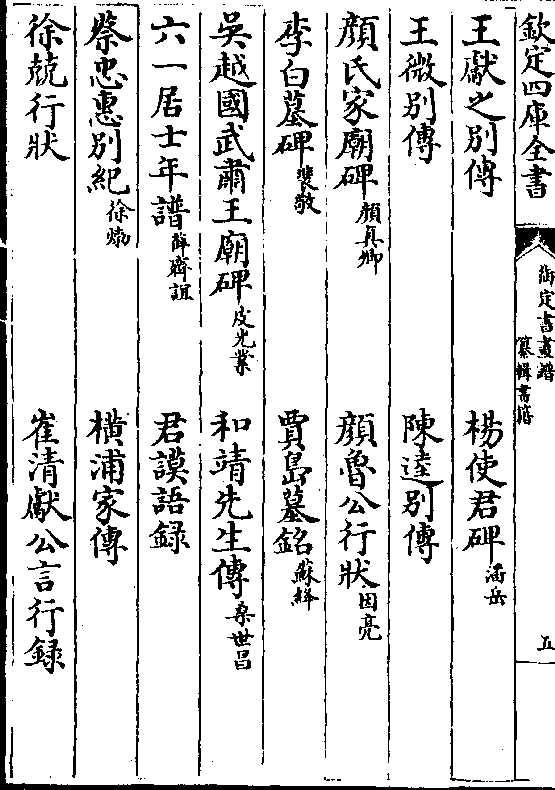 欽定四庫全書
御定書畫譜
纂輯書籍
五
王獻之別傳 楊使君碑潘岳
王微別傳 陳逵別傳
顏氏家廟碑顏真卿 顏魯公行狀因亮
李白墓碑裴敬 賈島墓銘蘇絳
吳越國武肅王廟碑皮光業 和靖先生傳桑世昌
六一居士年譜薛齊誼 君謨語録
蔡忠惠別紀徐𤊹 橫浦家傳
徐兢行狀 崔清獻公言行録